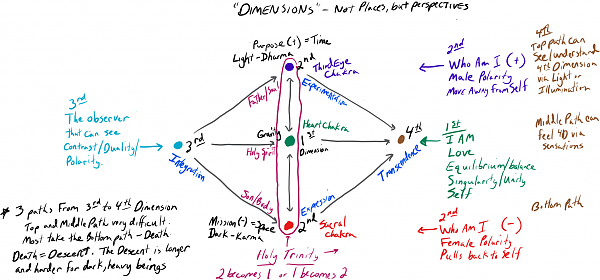 "DIMENSIONS" - Not Places, but perspectives
Purpose (+) = Time
Light - Dharma
2nd
Third Eye
Chakra
Father/Soul
Experimentation
3rd
The observer
that can see
Contrast/Duality/
Polarity.
3rd
Integration
Gravity
Holy Spirit
Heart Chakra
1st
Dimension
4th
Transcendence
Son/Body
Expression
Mission (-) = Space
Dark - Karma
2nd
Sacral
Chakra
Holy Trinity
2 becomes 1 or 1 becomes 2
* 3 paths From 3rd to 4th Dimension
Top and Middle Path very difficult.
Most take the Bottom path - Death.
Death = Descent. The Descent is longer
and harder for dark, heavy beings
2nd
Who Am I (+)
Male Polarity
Move Away from Self
1st
I AM
Love
Equilibrium/balance
Singularity/Unity
Self
2nd
Who Am I (-)
Female Polarity
Pulls back to Self
4th
Top path can
See/understand
4th Dimension
via Light or
Illumination
Middle Path can
feel 4D via
sensations
Bottom Path